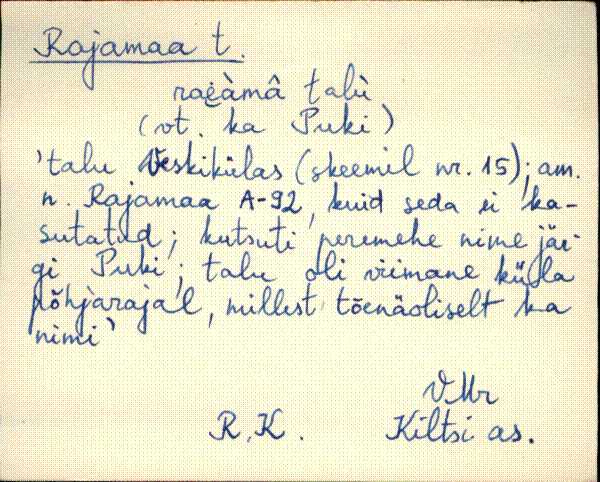 Rajamaa t.
raeàmâ talù
(vt. ka Puki)
'talu Veskikülas (skeemil nr. 15); am.
n. Rajamaa A-92, kuid seda ei ka-
sutatud; kutsuti peremehe nime jär-
gi Puki; talu oli viimane küla
põhjarajal, millest tõenäoliselt ka
nimi'
VMr
R.K. Kiltsi as.